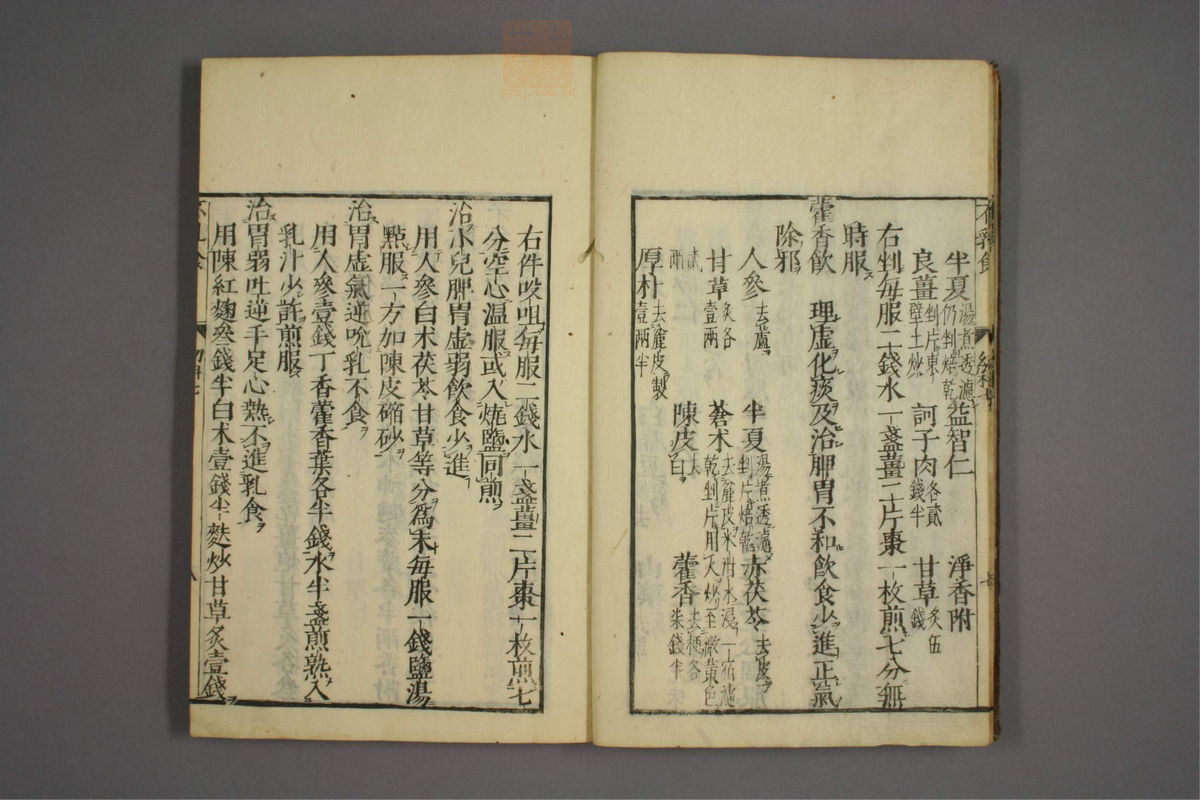 半夏湯煮透濾仍剉焙乾 益智仁 淨香附
良薑剉片東壁土炒 訶子肉各貳錢半 甘草炙伍錢
右剉每服二錢水一盞薑二片棗一枚煎七分無
時服
藿香飲 理虛化痰及治脾胃不和飲食少進正氣
除邪
人參去蘆 半夏湯煮透濾剉片焙乾 赤茯苓去皮
甘草炙各壹兩 蒼术去麄皮米泔水浸一宿濾乾剉片用火炒至微黃色
貳兩
厚朴去麄皮製壹兩半 陳皮去白 藿香去梗各柒錢半
右件㕮咀每服二錢水一盞薑二片棗一枚煎七
分空心溫服或入燒鹽同煎
治小兒脾胃虛弱飲食少進
用人參白术茯苓甘草等分爲末每服一錢鹽湯
點服一方加陳皮縮砂
治胃虛氣逆吮乳不食
用人參壹錢丁香藿香葉各半錢水半盞煎熟入
乳汁少許煎服
治胃弱吐逆手足心熱不進乳食
用陳紅麴叁錢半白术壹錢半麩炒甘草炙壹錢